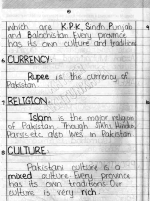 which are K.P.K, Sindh, Punjab
and Balochistan. Every province
has its own culture and traditions
6 CURRENCY:
Rupee is the currency of
Pakistan.
7 RELIGION:
Islam is the major religion
of Pakistan. Though Sikhs, Hindus,
Parsis etc also lives in Pakistan
8 CULTURE:
Pakistani culture is a
mixed culture. Every province
has its own traditions. Our
culture is very rich.